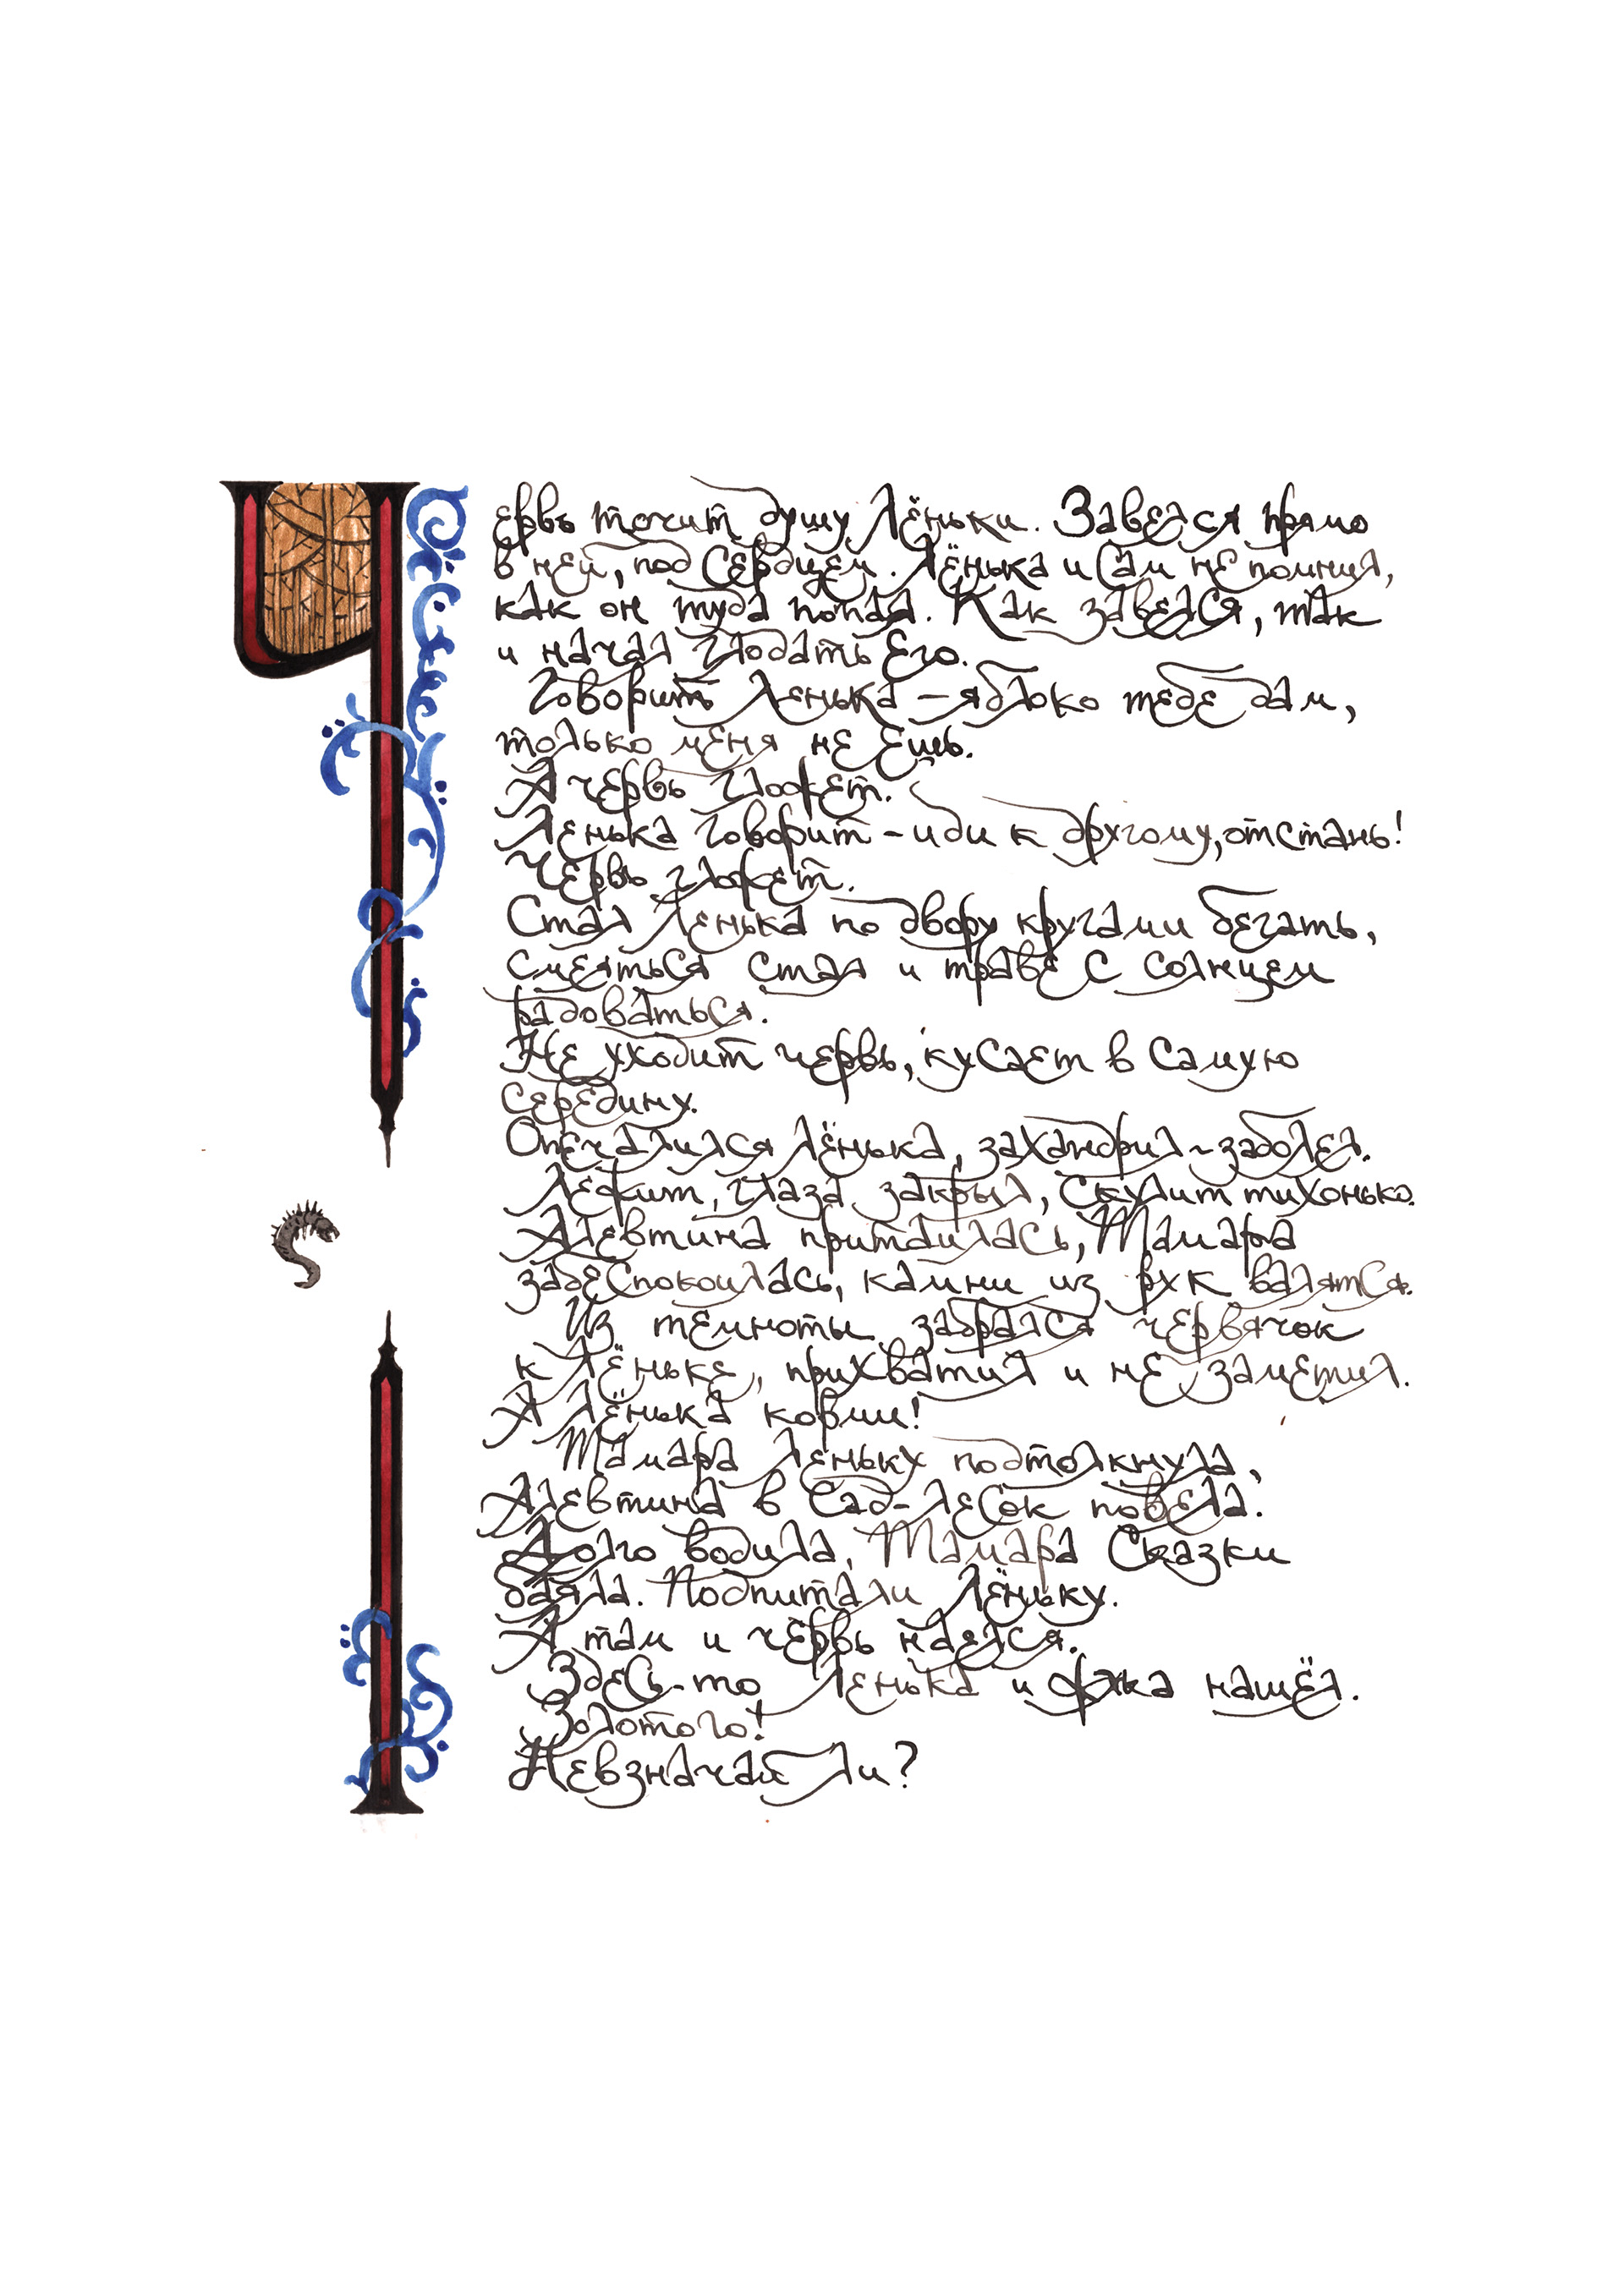 Червь точит душу Лёньки. Завелся прямо
в ней, под сердцем. Лёнька и сам не помнил,
как он туда попал. Как завелся, так
и начал глодать его.
Говорит Ленька – яблоко тебе дам,
только меня не ешь.
А червь гложет.
Ленька говорит – иди к другому, отстань!
Червь гложет.
Стал Ленька по двору кругами бегать,
смеяться стал и траве с солнцем
радоваться.
Не уходит червь, кусает в самую
середину.
Опечалился Лёнька, захандрил – заболел.
Лежит, глаза закрыл, скулит тихонько.
Алевтина притаилась, Тамара
забеспокоилась, камни из рук валятся.
Из темноты забрался червячок
к Лёньке, прихватил и не заметил.
А Лёнька корми!
Тамара Леньку подтолкнула,
Алевтина в Сад-лесок повела.
Долго водила, Тамара сказки
баяла. Подпитали Лёньку.
А там и червь наелся.
Здесь-то Ленька и жука нашёл.
Золотого!
Невзначай ли?